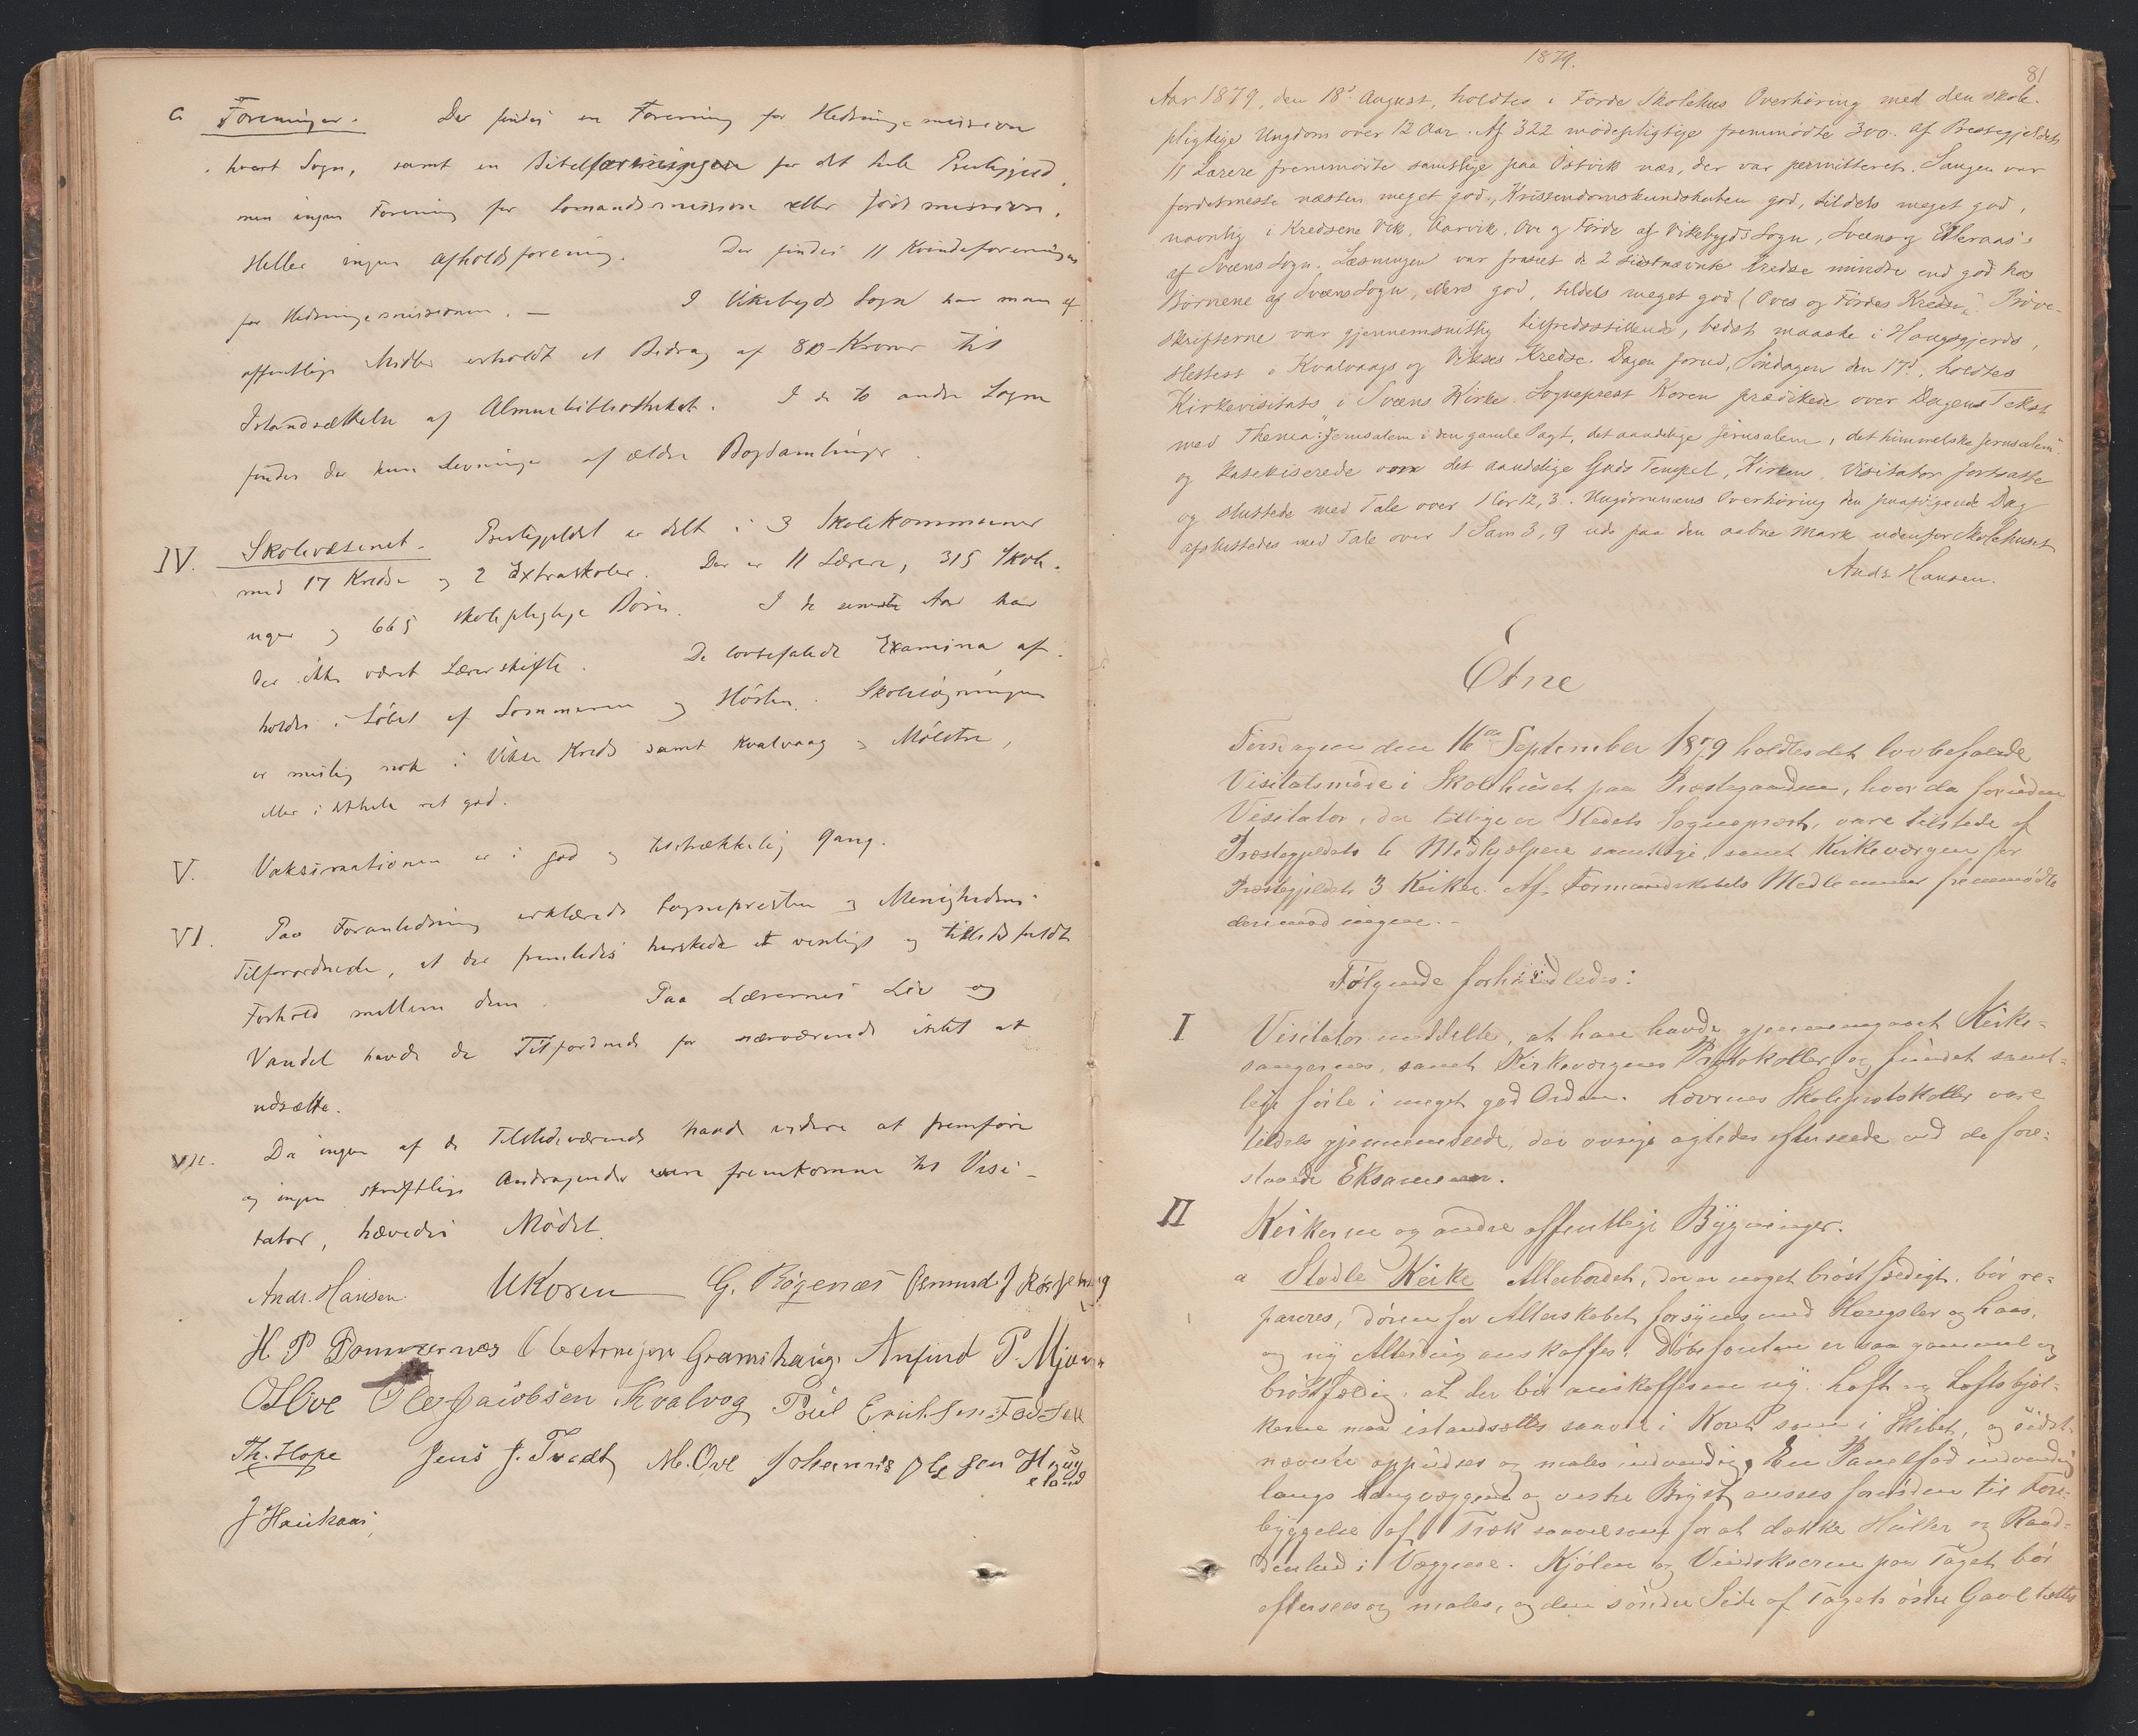 c. Foreninger. Der findes en Forening for Hedningemissionen
hvert Sogn, samt en Bibelforening for det hele Prestegjeld
men ingen Forening for Sømandsmissionen eller Jødemissionen.
Heller ingen Afholdsforening. Der findes 11 Kvindeforeninger
for Hedningemissionen. — I Vikebygds Sogn har man af
offentlige Midler erholdt et Bidrag af 80 Kroner til
Istandsættelse af Almuebibliotheket. I de to andre Sogne
findes der kun Levninger af ældre Bogsamlinger.
IV. Skolevæsenet. Prestegjeldet er delt i 3 Skolekommuner
med 17 Kredse og 2 Extraskoler. Der er 11 Lærere, 315 Skole-
uger og 665 skolepligtige Børn. I de seneste Aar har
der ikke været Lærerskifte. De lovbefalede Examina af-
holdes i Løbet af Sommeren og Høsten. Skolesøgningen
er mislig nok i Vikse Kreds samt Kvalvaag og Mølstre,
ellers i det hele ret god.
V. Vaksinationen er i god og tilstrækkelig Gang.
VI. Paa Foranledning erklærede Sognepresten og Menighedens
Tilforordnede, at der fremdeles herskede et venligt og tillidsfuldt
Forhold mellem dem. Paa Lærernes Liv og
Vandel havde de Tilforordnede for nærværende intet at
udsætte.
VII. Da ingen af de Tilstedeværende havde videre at fremføre
og ingen skriftlige Andragender vare fremkomne til Visi-
tator, hævedes Mødet.
Andr. Hansen. UKoren G. Bøgenæs Asmund J
H P Dommernæs Gramshaug Anfind P. Mjo
O Hove Ole Jacobsen Kvalvog Poul Eriksen
Th. Hope Jens J. Tvedt M. Ove Johannes Olsen Houg
eland
J Haukaas
1879.
81
Aar 1879, den 18de August, holdtes i Førde Skolehus Overhøring med den skole-
pligtige Ungdom over 12 Aar. Af 322 mødepligtige fremmødte 300. af Prestegjeldets
11 Lærere fremmødte samtlige paa Østvik nær, der var permitteret. Sangen var
fordetmeste næsten meget god, Kristendomskundskaben god, tildels meget god,
navnlig i Kredsene Vik, Aarvik, Ove og Førde af Vikebygds Sogn, Sveens og Elleraas's
af Sveens Sogn. Læsningen var fraseet de 2 sidstnævnte Kredse mindre end god hos
Børnene af Sveens Sogn, ellers god, tildels meget god (Oves og Førdes Kredse). Prøve-
skrifterne var gjennemsnitlig tilfredsstillende, bedst maaske i Haugsgjerds,
slettest i Kvalvaags og Vikses Kredse. Dagen forud, Søndagen den 17de, holdtes
Kirkevisitats i Sveens Kirke. Sogneprest Koren prædikede over Dagens Tekst
med Thema: "Jerusalem i den gamle Pagt, det aandelige Jerusalem, det himmelske Jerusalem"
og katekiserede om det aandelige Guds Tempel, Kirken. Visitator fortsatte
og sluttede med Tale over 1 Cor 12, 3. Ungdommens Overhøring den paafølgende Dag
afsluttedes med Tale over 1 Sam 3, 9 ude paa den aabne Mark udenfor Skolehuset
Andr Hansen.
Etne
Tirsdagen den 16de September 1879 holdtes det lovbefalede
Visitatsmøde i Skolehuset paa Præstegaarden, hvor da foruden
Visitator, der tillige er Stedets Sognepræst, vare tilstede af
Præstegjeldets 6 Medhjælpere samtlige, samt Kirkeværgen for
Præstegjeldets 3 Kirker. Af Formandskabets Medlemmer fremmødte
derimod ingen. -
Følgende forhandledes:
I Visitator meddelte, at han havde gjennemgaaet Kirke-
sangernes, samt Kirkeværgens Protokoller og fundet samt-
lige førte i meget god Orden. Lærernes Skoleprotokoller vare
tildels gjennemseede, de øvrige agtedes efterseede ved de fore-
staaende Eksamener.
II Kirkerne og andre offentlige Bygninger.
a Stødle Kirke Alterbordet, der er noget brøstfældigt, bør re-
pareres, døren for Alterskabet forsynes med Hængsler og Laas,
og ny Alterdug anskaffes. Døbefonten er saa gammel og
brøstfældig, at der bør anskaffes en ny. Loft og Loftsbjel-
kerne maa istandsættes saavel i Koret som i Skibet, og sidst-
nævnte oppudses og males indvendig. En Panelfod indvendig
langs Langvæggene og vestre Bryst ansees fornøden til Fore-
byggelse af Træk saavelsom for at dække Huller og Raad-
denhed i Væggene. Kjølen og Vindskierne paa Taget bør
eftersees og males, og den søndre Side af Tagets østre Gavl tættes